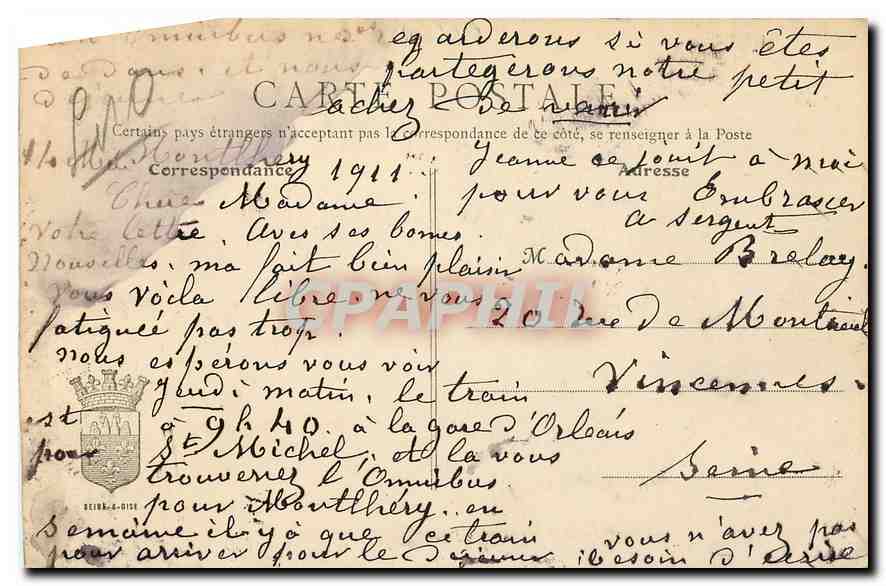 Omnibus
egarderons si vous êtes
dedans. et nous
partegerons notre petit
CARTE POSTALE
achez de venir
Certains pays étrangers n'acceptant pas la correspondance de ce côté, se renseigner à la Poste
Montlhéry 1911
Correspondance
Chère Madame.
Votre lettre Aves ses bonnes.
Nouvelles. m'a fait bien plaisir
Vous voila libre. ne vous
fatiguéé pas trop.
nous espérons vous voir
Jeudi matin. le train
est à 9h40. à la gare d'Orleais
pour St Michel, et la vous
trouverez l'Omnibus
pour Montlhéry. en
SEINE-&-OISE
semaine il y à que ce train
pour arriver pour le dejeuner
vous n'avez pas
besoin d'écrire
Jeanne se jouit à moi
Adresse
pour vous Embrasser
A sergent
Madame Brelay.
20 rue de Montreuil
Vincennes.
Seine
CPAPHIL